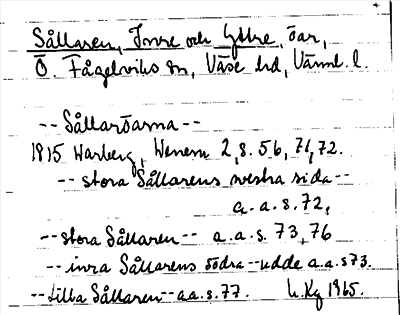 Sållaren, Inre och Yttre, öar,
Ö. Fågelviks sn, Väse hd, Värml. l.
-- Sållaröarna --
1815 Warberg, Wenern 2, s. 56, 71, 72.
-- stora Sållarens westra sida --
a. a. s. 72,
-- stora Sållaren -- a. a. s. 73, 76
-- inra Sållarens södra -- udde a. a. s 73.
-- Lilla Sållaren -- a. a. s. 77. 1965.